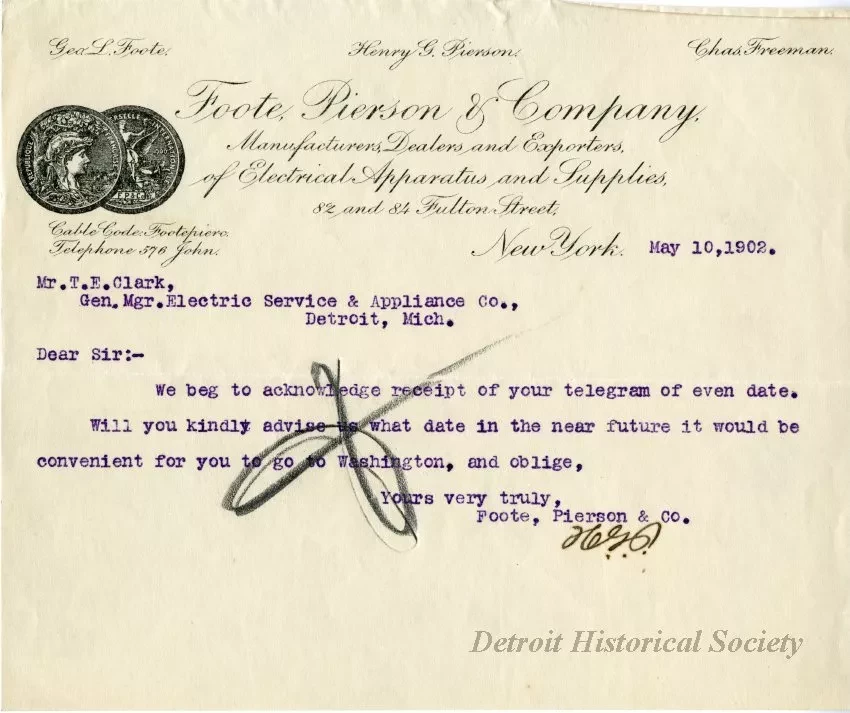 Geo. L. Foote.
Henry G. Pierson.
Chas. Freeman.
Foote, Pierson & Company,
Manufacturers, Dealers and Exporters,
of Electrical Apparatus and Supplies,
82 and 84 Fulton Street,
Cable Code: Footepiero.
Telephone 576 John.
New York. May 10,1902.
Mr.T.E.Clark,
Gen.Mgr.Electric Service & Appliance Co.,
Detroit, Mich.
Dear Sir:-
We beg to acknowledge receipt of your telegram of even date.
Will you kindly advise us what date in the near future it would be
convenient for you to go to Washington, and oblige,
Yours very truly,
Foote, Pierson & Co.
H.G.P.
Detroit Historical Society